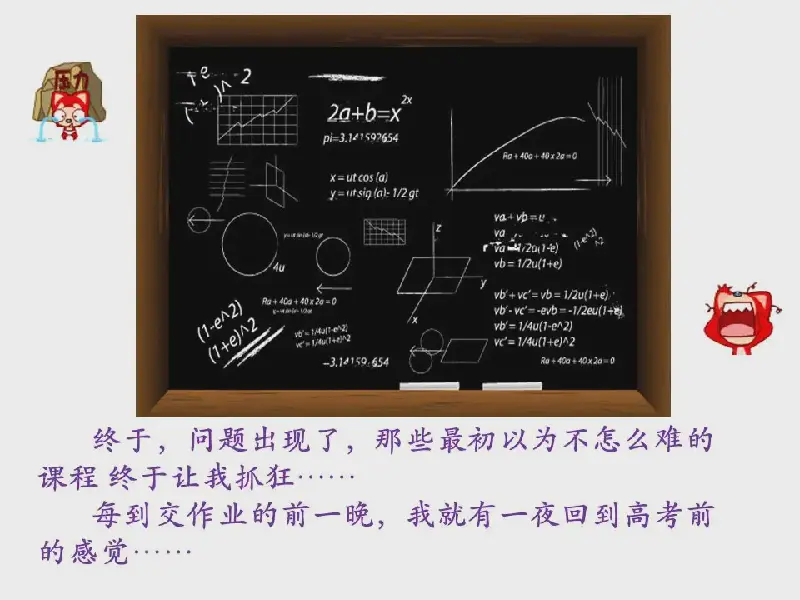 压力
+e
^2
2a+b=x^2x
pi=3.141592654
x = ut cos (a)
y = ut sig (a)- 1/2 gt
Ra + 40a + 40 x 2a = 0
va + vb = u
va
va = 1/2a(1-e)
vb = 1/2u(1+e)
(1-e^2)
^2
z
y
x
4u
y = ut sin (a)- 1/2 gt
Ra + 40a + 40 x 2a = 0
(1-e^2)
(1+e)^2
vb' = 1/4u(1-e^2)
vc' = 1/4u(1+e)^2
vb' + vc' = vb = 1/2u(1+e)
vb' - vc' = -evb = -1/2eu(1+e)
vb' = 1/4u(1-e^2)
vc' = 1/4u(1+e)^2
Ra + 40a + 40 x 2a = 0
终于，问题出现了，那些最初以为不怎么难的
课程 终于让我抓狂……
每到交作业的前一晚，我就有一夜回到高考前
的感觉……